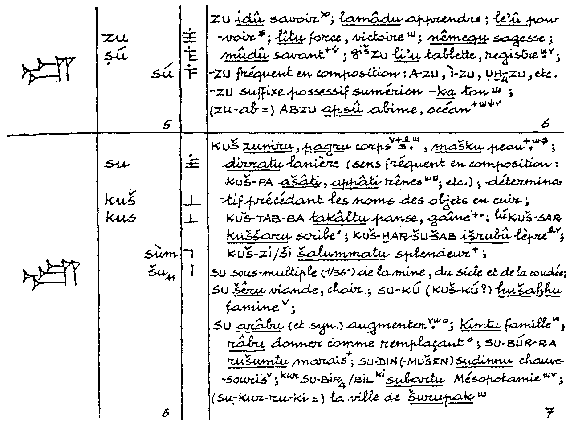 ZU idû savoir; lamādu apprendre; le'û pou-
zu
-voir; lītu force, victoire; nēmequ sagesse;
ṣú
mūdû savant; gišZU li'u tablette, registre;
sú
-ZU fréquent en composition: A-ZU, Ì-ZU, etc.
-ZU suffixe possessif sumérien -ka ton;
(ZU-AB=) ABZU apsû abîme, océan
5
6
KUŠ zumru, pagru corps, mašku peau;
su
dirratu lanière (sens fréquent en composition:
KUŠ-PA ašâti, appâti rênes, etc.); détermina-
kuš
tif précédant les noms des objets en cuir;
kus
KUŠ-TAB-BA takāltu panse, gaîne; lúKUŠ-SAR
kuššaru scribe; KUŠ-HAR-ŠUŠAB išrubû lèpre;
sùm
KUŠ-ZI/ŠI šalummatu splendeur;
šu₁₁
SU sous-multiple (1/36) de la mine, du sicle et de la coudée;
SU šêru viande, chair; SU-KÚ (KUŠ-KÚ?) hušahhu
famine;
SU arâbu (et syn.) augmenter; kimtu famille,
râbu donner comme remplaçant; SU-BÚR-RA
rušumtu marais; SU-DIN(-MUŠEN) sudinnu chauve-
-souris; kur SU-BIR₄/BIL ki subartu Mésopotamie;
(SU-KUR-RU-KI=) la ville de Šurupak
6
7